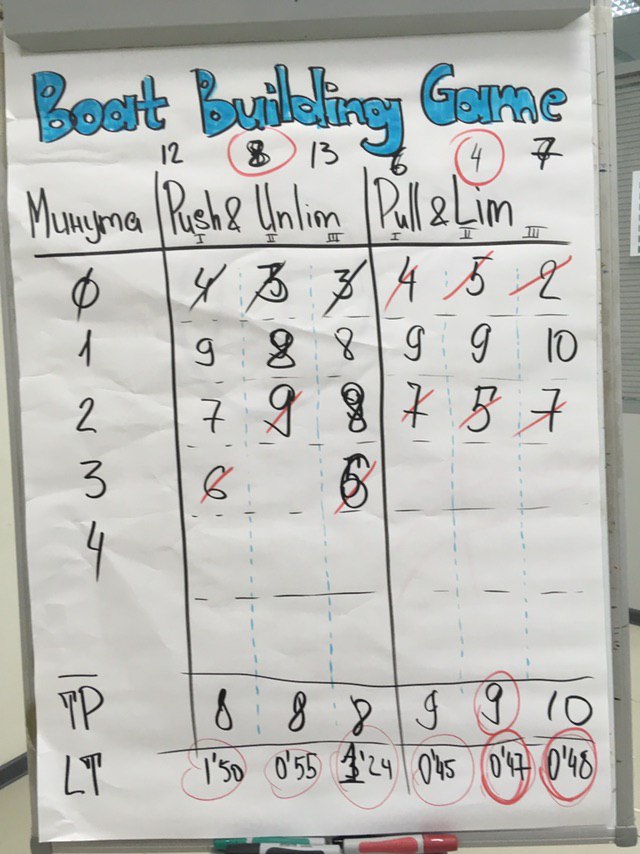 Boat Building Game
12 8 13 6 4 7
Минута Push & Unlim Pull & Lim
I II III I II III
0 4 3 3 4 5 2
1 9 8 8 9 9 10
2 7 9 8 7 5 7
3 6 6
4
TP 8 8 8 9 9 10
LT 1'50 0'55 1'24 0'45 0'47 0'48